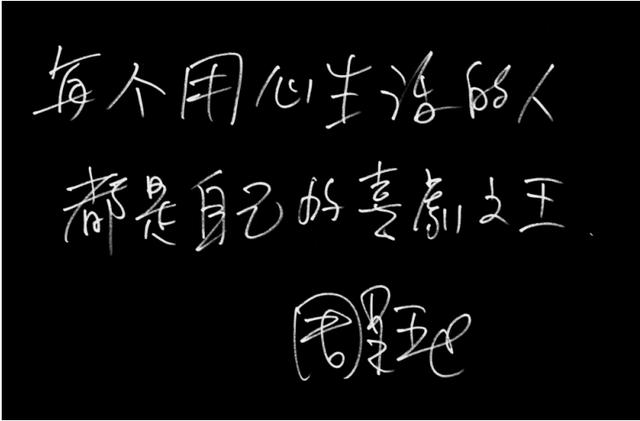 每个用心生活的人
都是自己的喜剧之王.
周星驰